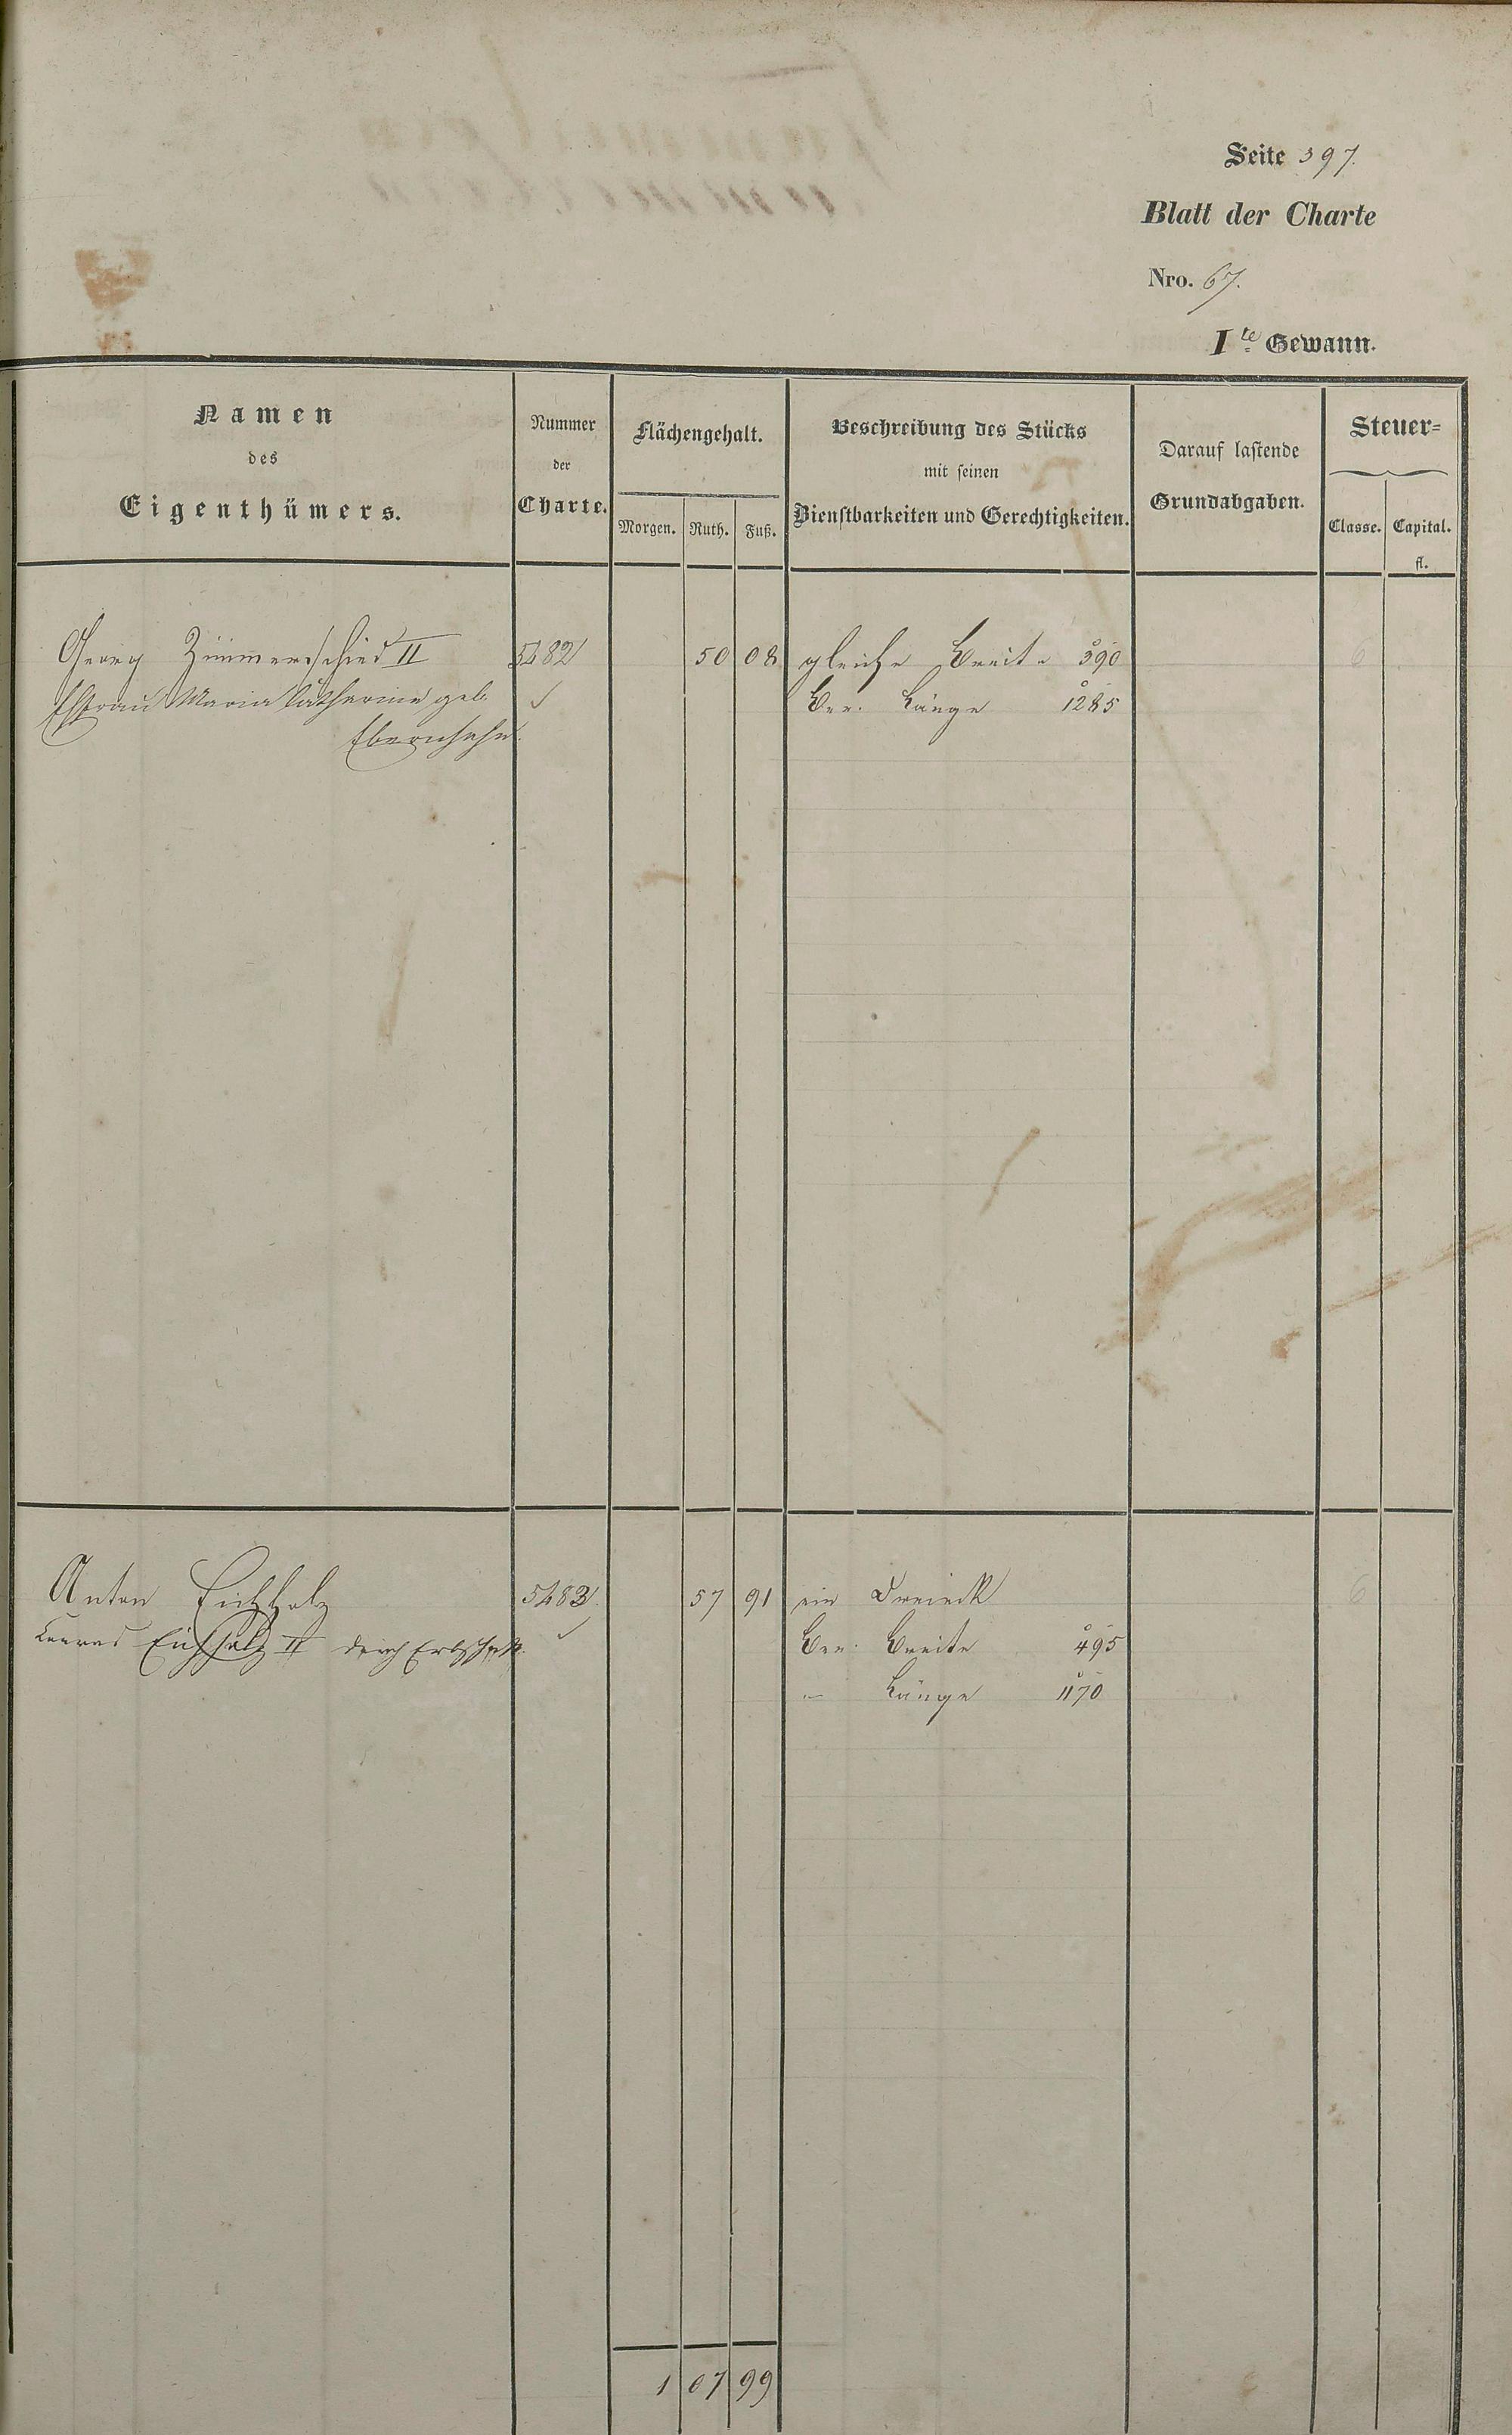 Seite 397.
Blatt der Charte
Nro. 67.
I te Gewann.
Namen
des
Eigenthümers.
Nummer
der
Charte.
Flächengehalt.
Morgen. Ruth. Fuß.
Beschreibung des Stücks
mit seinen
Dienstbarkeiten und Gerechtigkeiten.
Darauf lastende
Grundabgaben.
Steuer=
Classe. Capital.
fl.
Georg Zimmerschied II 5482 50 08 gleiche Breite 390 6
Ehfrau Maria Catharine geb. Ber. Länge 1285
Ebernhahn.
Anton Eichholz 5483. 57 91 ein Dreieck 6
Eichholz II durch Erbschft. Ber. Breite 495
" Länge 1170
1 07 99